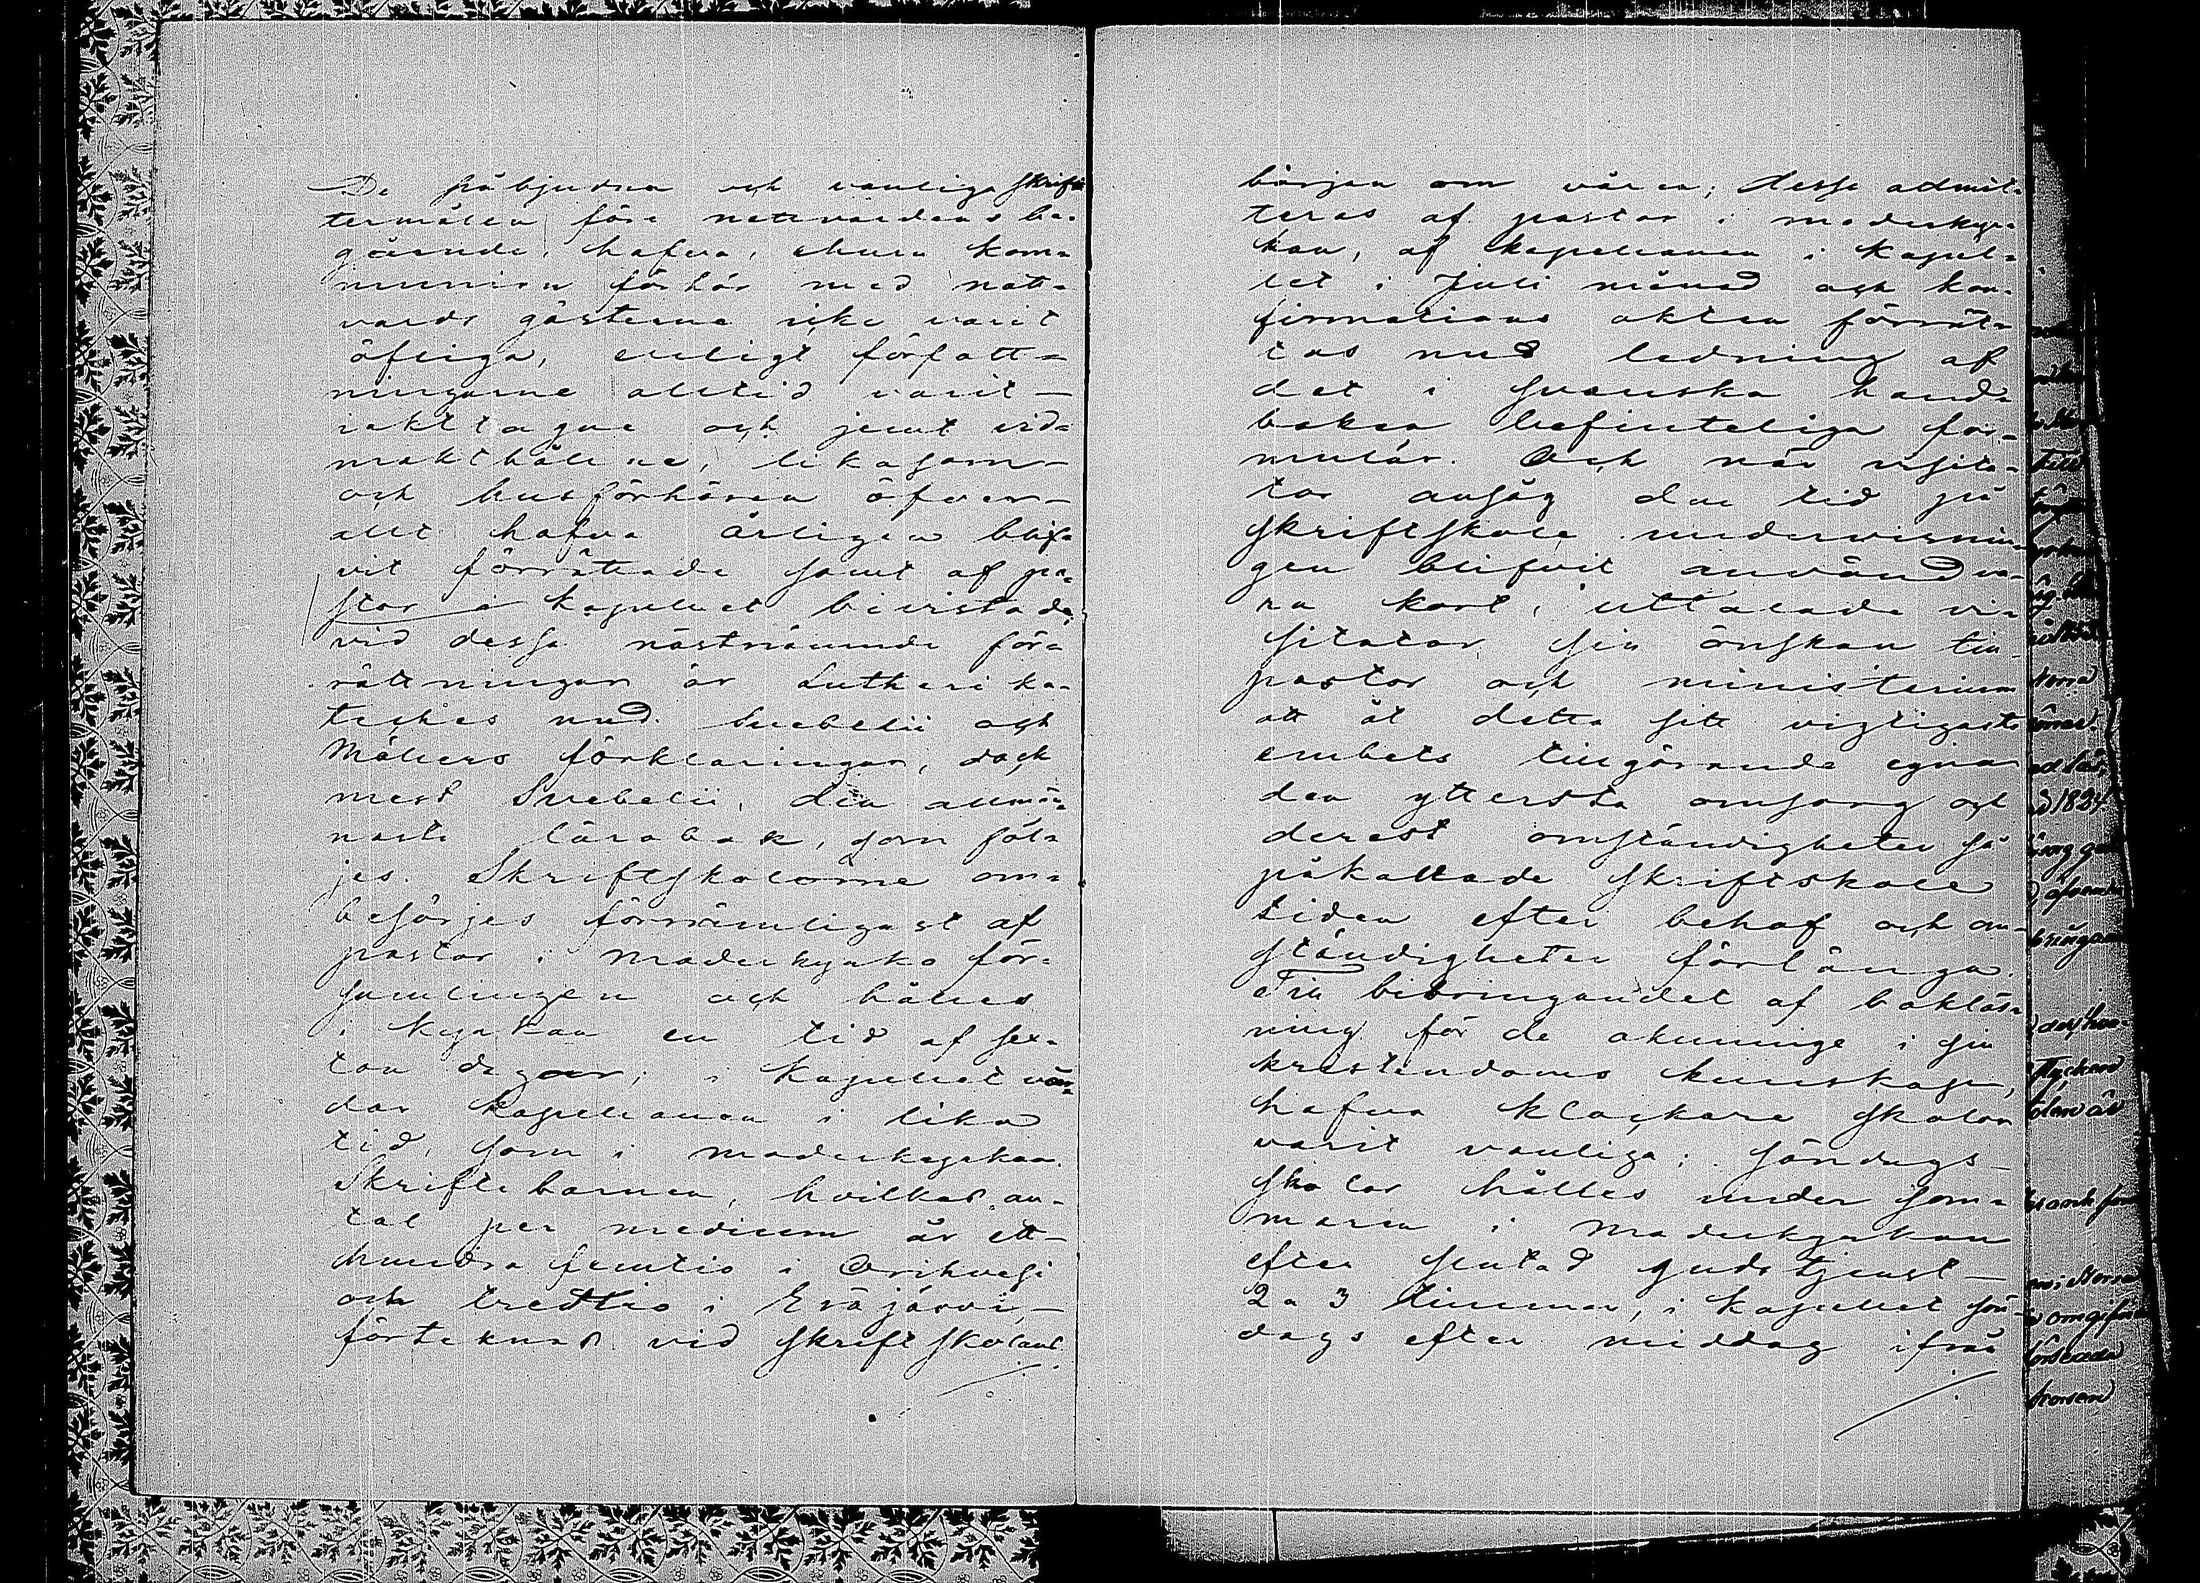 De påbjudna och vanliga skrif-
termålen före nattvardens be-
gående, hafva, ehuru kom-
munion förhör med natt-
vards gästerne icke varit
öfliga, enligt författ-
ningarne alltid varit
iakttagne och jemt vid-
makthållne, likasom
och husförhören öfver-
allt hafva årligen blif-
vit förrättade samt af pa-
stor i kapellet bevistade,
vid dessa nästnämnde för-
rättningar är Lutheri ka-
teches med Svebelii och
Möllers förklaringar, dock
mest Svebelii, den allmän-
naste lärobok, som föl-
jes. Skriftskolorne om-
besörjes förnämligast af
pastor i moderkyrko för-
samlingen och hålles
i kyrkan en tid af sex-
ton dagar; i kapellet vår-
dar kapellanen i lika
tid, som i moderkyrkan.
Skriftebarnen, hvilkas an-
tal per medium är ett-
hundra femtio i Orihvesi
och trettio i Eräjärvi,
förteknas vid skriftskolans
början om våren; desse admit-
teras af pastor i moderkyr-
kan, af kapellanen i kapel-
let i Juli månad och kon-
firmations akten förrät-
tas med ledning af
det i svenska hand-
boken befinteliga for-
mulär. Och när visita-
tor ansåg den tid på
skriftskole undervisnin-
gen blifvit använd va-
ra kort, uttalade vi-
sitator sin önskan till
pastor och ministerium
att åt detta sitt vigtigaste
embets tillgörande egna
den yttersta omsorg och
derest omständigheter så
påkallade skriftskole
tiden efter behof och om-
ständigheter förlänga.
Till bibringandet af bokläs-
ning för de okunnige i sin
kristendoms kunskap,
hafva klockare skolor
varit vanliga; söndags-
skolor hålles under som-
maren i moderkyrkan
efter slutad gudstjenst
2 a 3 timmar, i kapellet sön-
dags efter middag ifrån